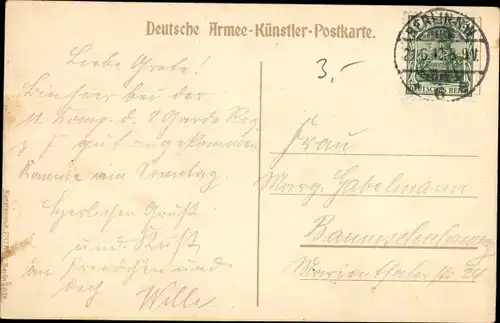 Deutsche Armee-Künstler-Postkarte.
BERLIN N.W.
6
DEUTSCHES REICH
3.-
Liebe Grete!
Bin hier bei der
11 Komp. d. 2 Garde Reg.
z F gut angekommen
komme am Sonntag
Herzlichen Gruß
und Kuß
an Frieschen und
Dich Wille
Frau
Marg. Gabelmann
Baumschulenweg
Marienthaler Str 24